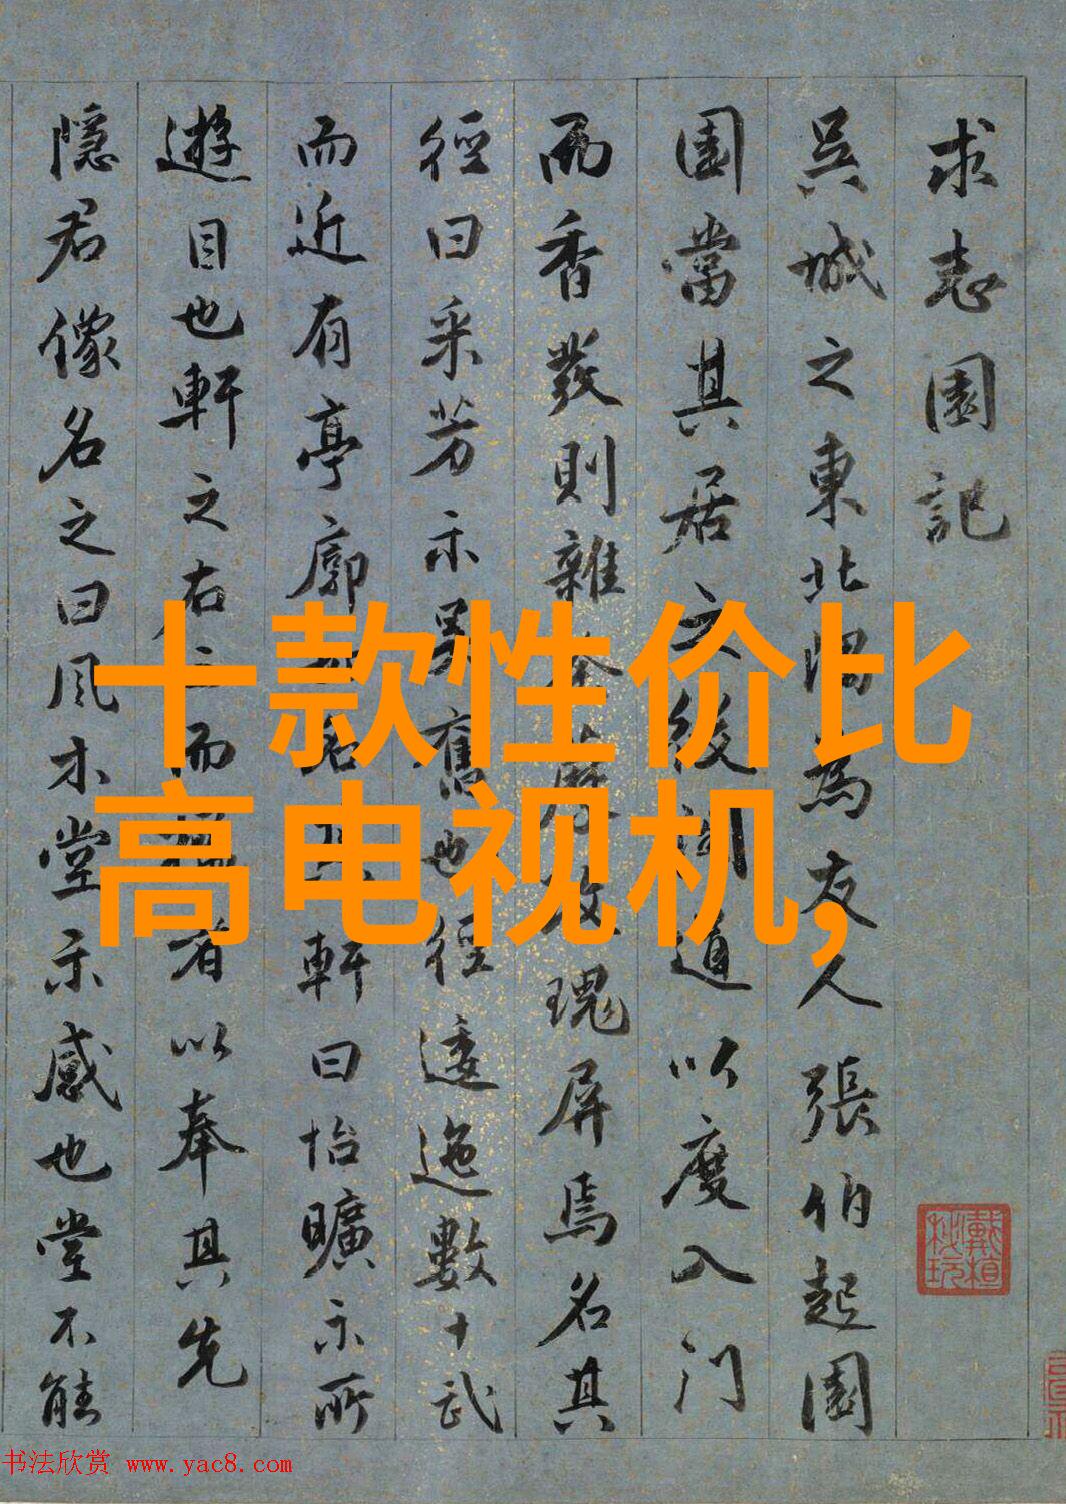 求志園記
吳城之東北隅為友人張伯起園
園當其居之後闢道以度入門
而香發則雜玫瑰屏焉名其
徑曰采芳示吳舊也徑逶迤數十武
而近有亭廓名軒曰怡曠示所
遊目也軒之右而楹者以奉其先
隱君像名之曰風木堂示感也堂不能
十款性价比
高电视机,
书法欣赏 www.yac8.com